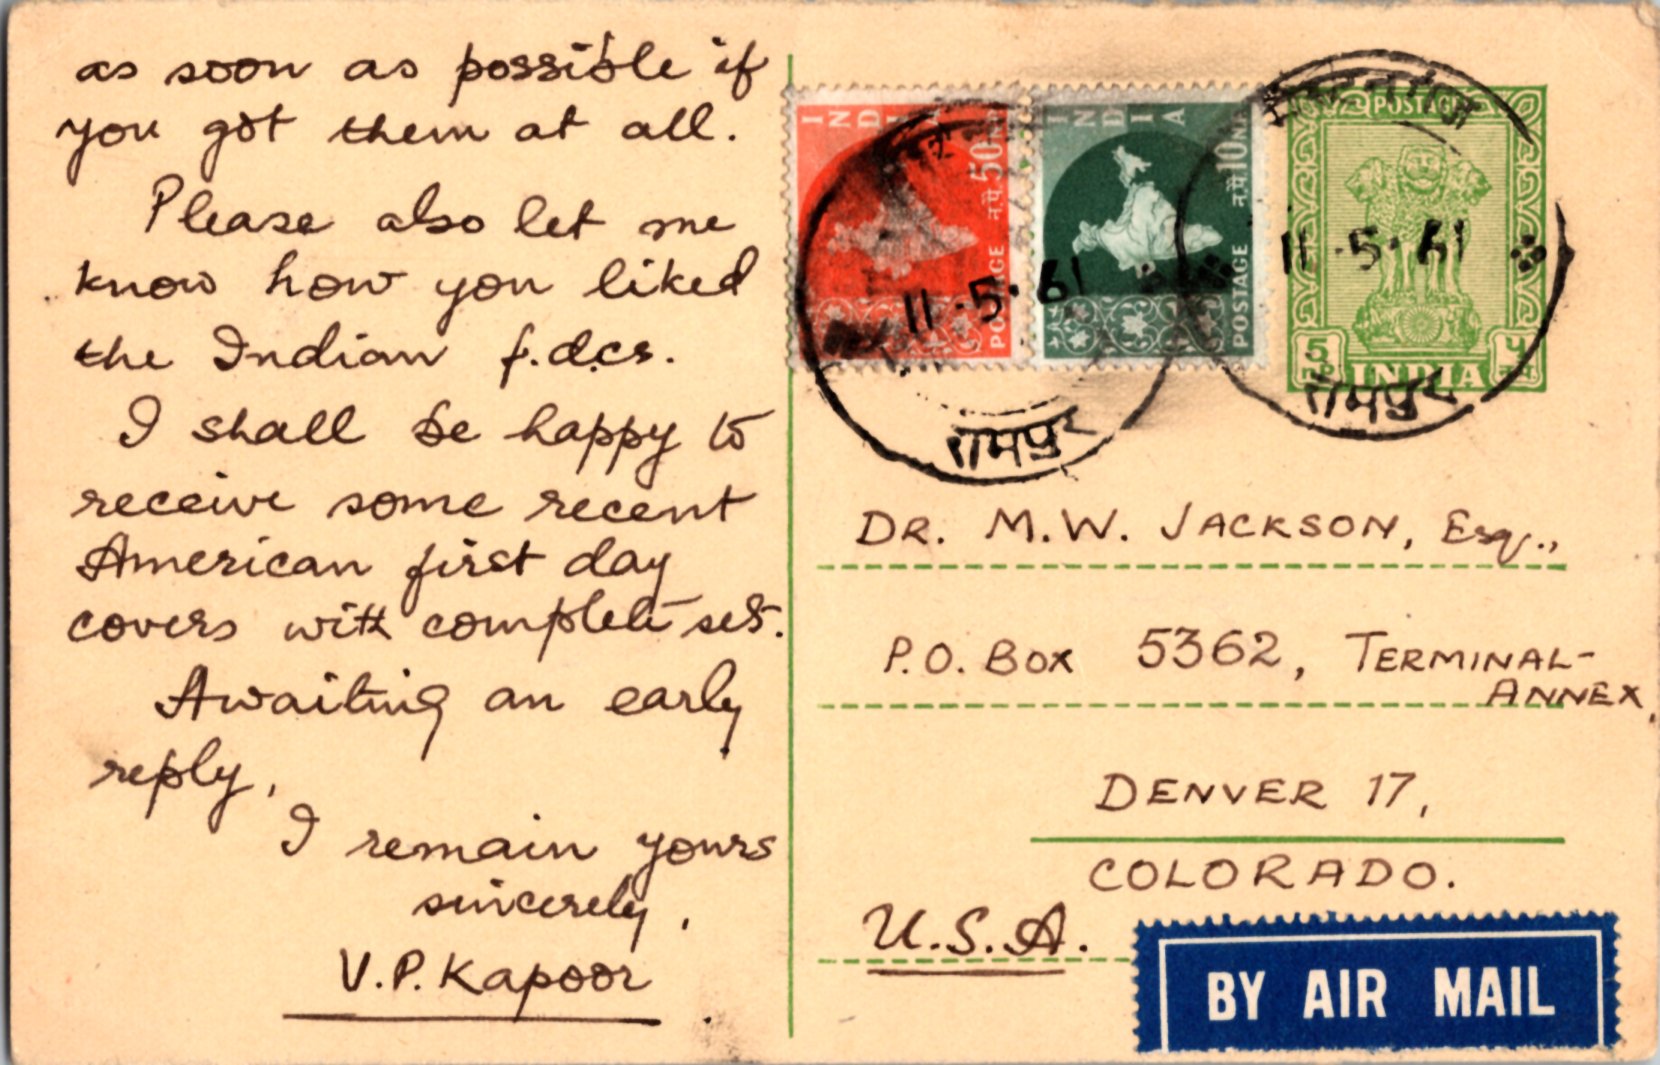 as soon as possible if
you got them at all.
Please also let me
know how you liked
the Indian f.d.cs.
I shall be happy to
receive some recent
American first day
covers with complete set.
Awaiting an early
reply,
I remain yours
sincerely,
V.P. Kapoor
INDIA
50 NP
न.पै.
POSTAGE
INDIA
10 NP
न.पै.
POSTAGE
POSTAGE
5
INDIA
11·5·61
रामपुर
11·5·61
रामपुर
DR. M.W. JACKSON, Esq.,
P.O. BOX 5362, TERMINAL-
ANNEX,
DENVER 17,
COLORADO.
U.S.A.
BY AIR MAIL